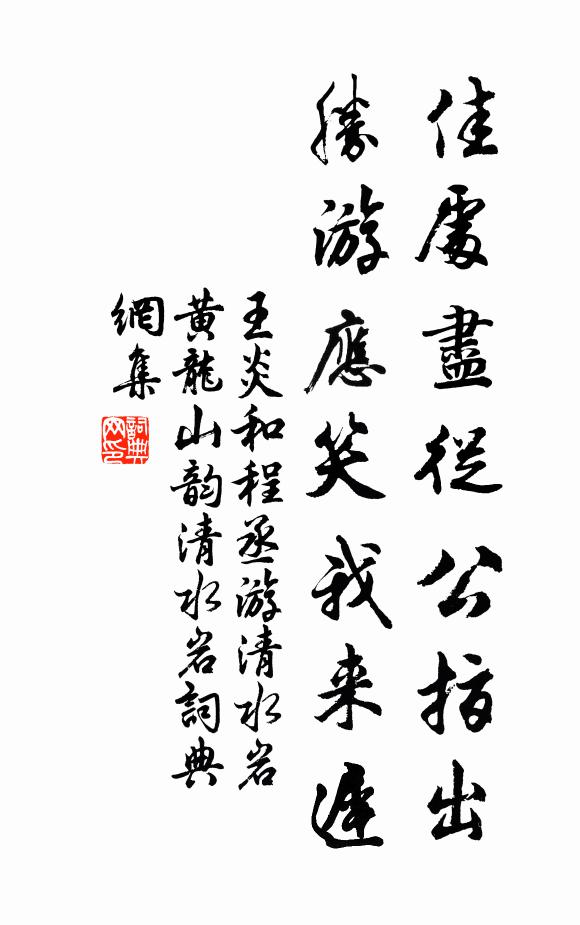 佳處盡從公指出
勝游應笑我来遲
王炎和程丞游清水岩
黄龍山韵清水岩詞典
網集
詞典
网印